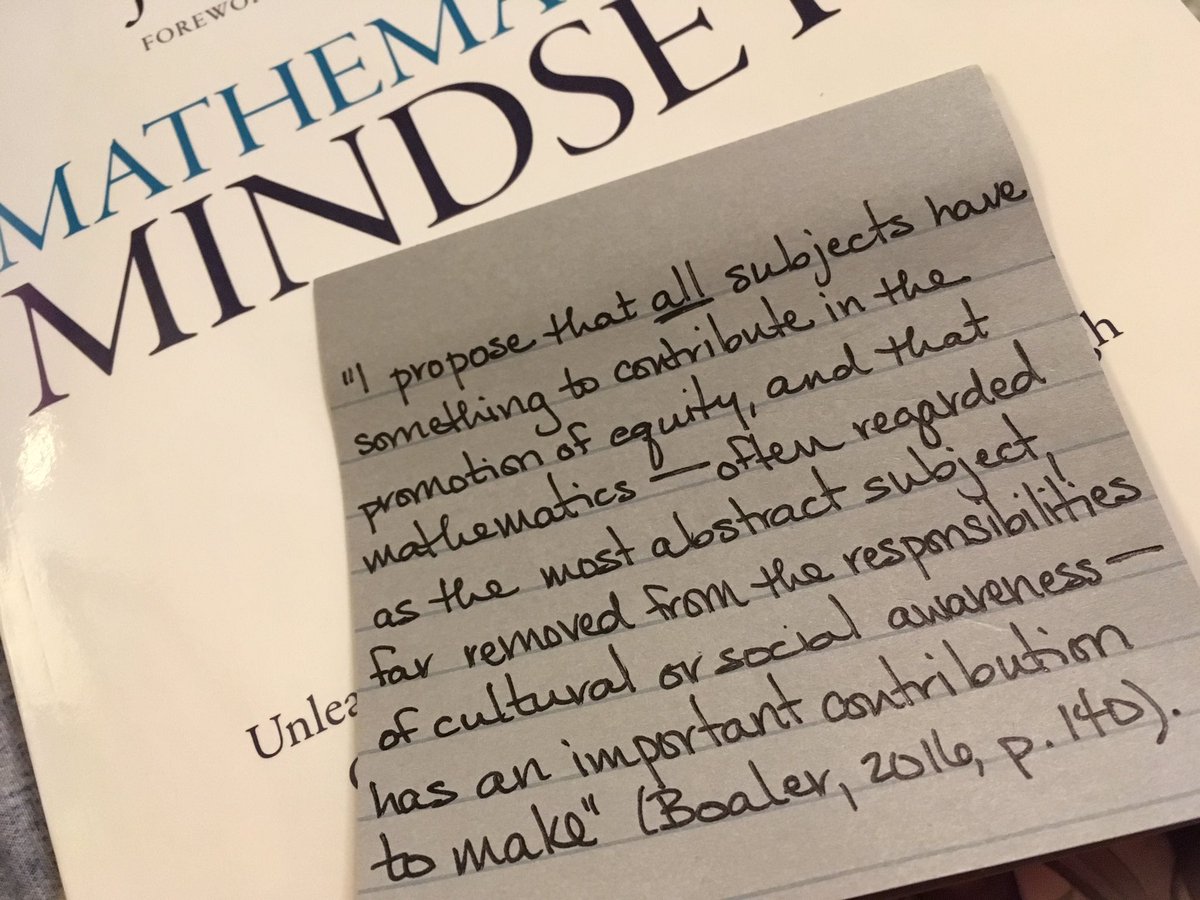 FOREWO
MATHEMA
MINDSET
"I propose that all subjects have
something to contribute in the
promotion of equity, and that
mathematics — often regarded
as the most abstract subject,
far removed from the responsibilities
of cultural or social awareness —
has an important contribution
to make" (Boaler, 2016, p. 140).
Unlea